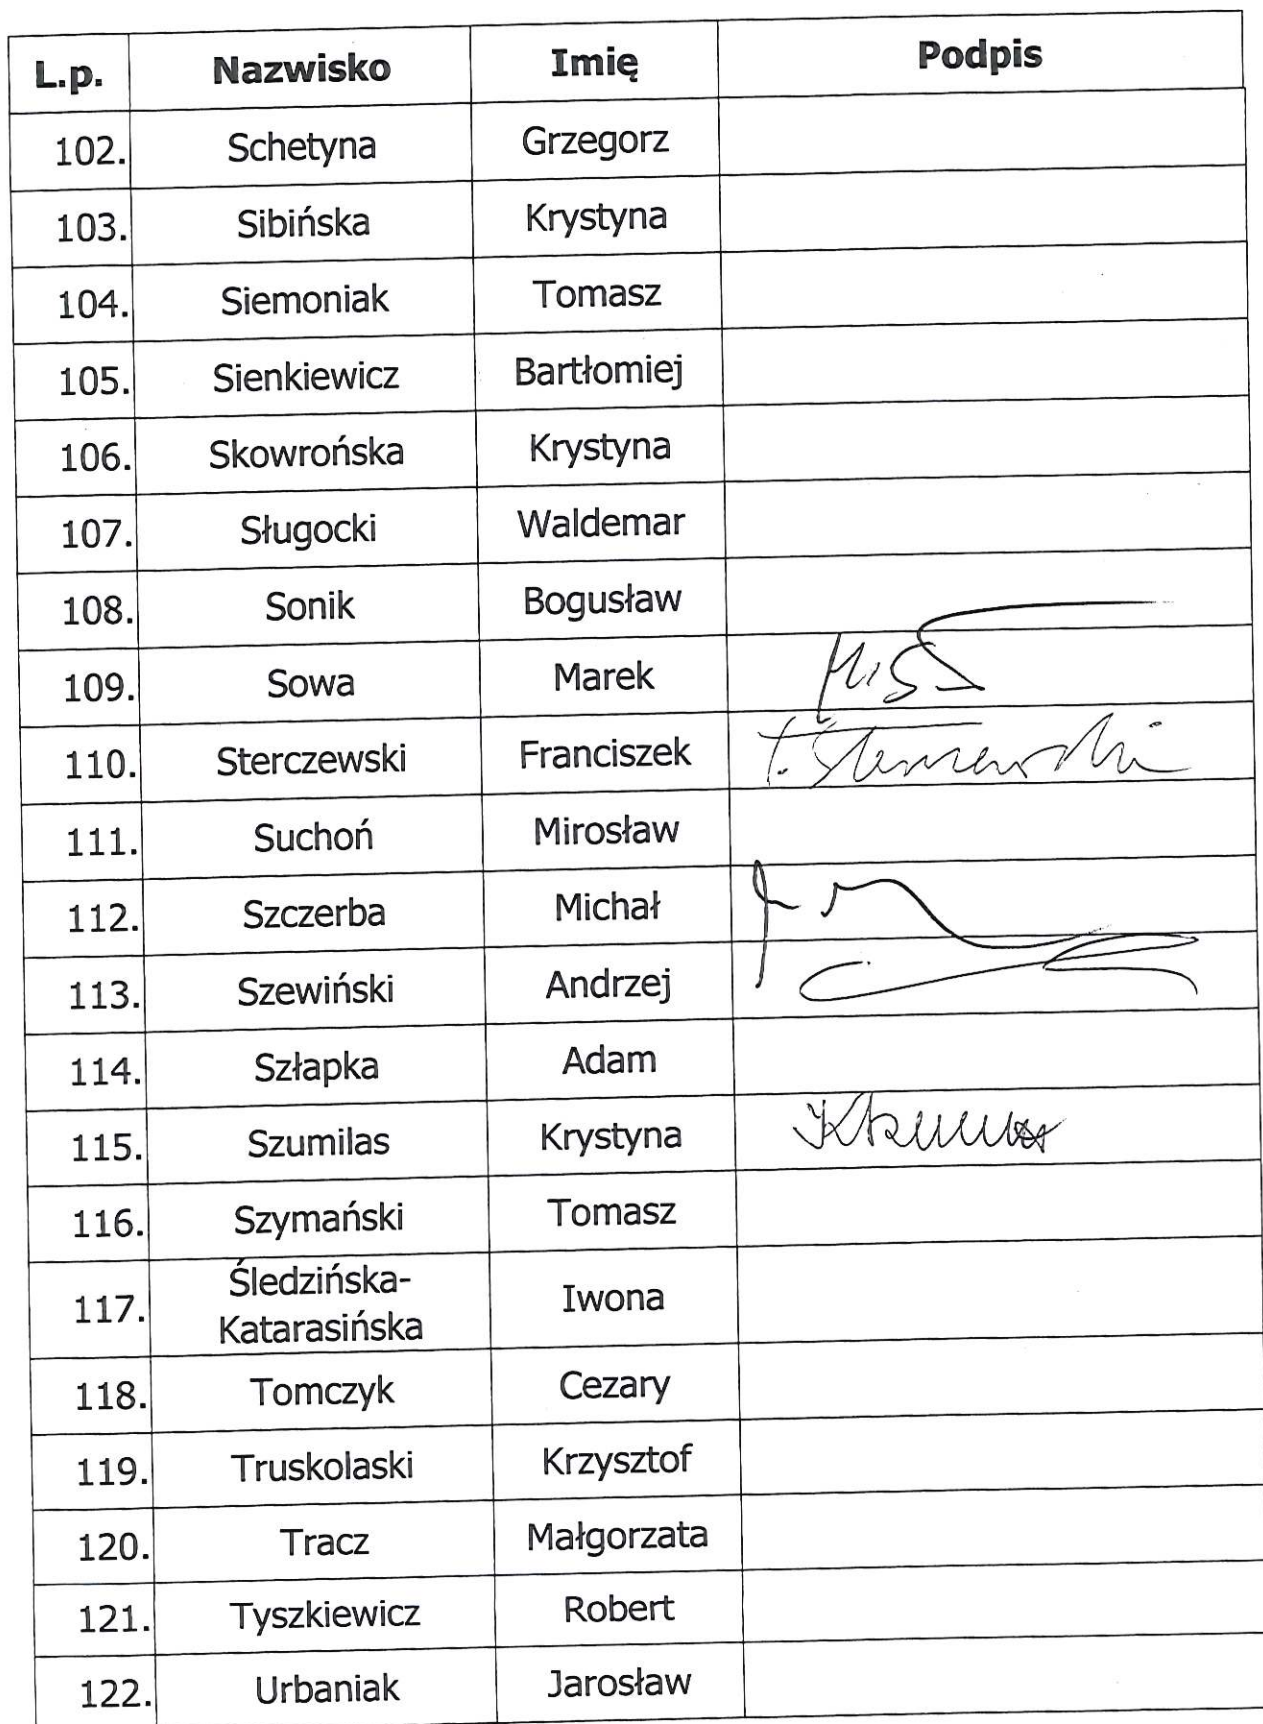 L.p. Nazwisko Imię Podpis
102. Schetyna Grzegorz
103. Sibińska Krystyna
104. Siemoniak Tomasz
105. Sienkiewicz Bartłomiej
106. Skowrońska Krystyna
107. Sługocki Waldemar
108. Sonik Bogusław
109. Sowa Marek
110. Sterczewski Franciszek
111. Suchoń Mirosław
112. Szczerba Michał
113. Szewiński Andrzej
114. Szłapka Adam
115. Szumilas Krystyna
116. Szymański Tomasz
117. Śledzińska-
Katarasińska Iwona
118. Tomczyk Cezary
119. Truskolaski Krzysztof
120. Tracz Małgorzata
121. Tyszkiewicz Robert
122. Urbaniak Jarosław